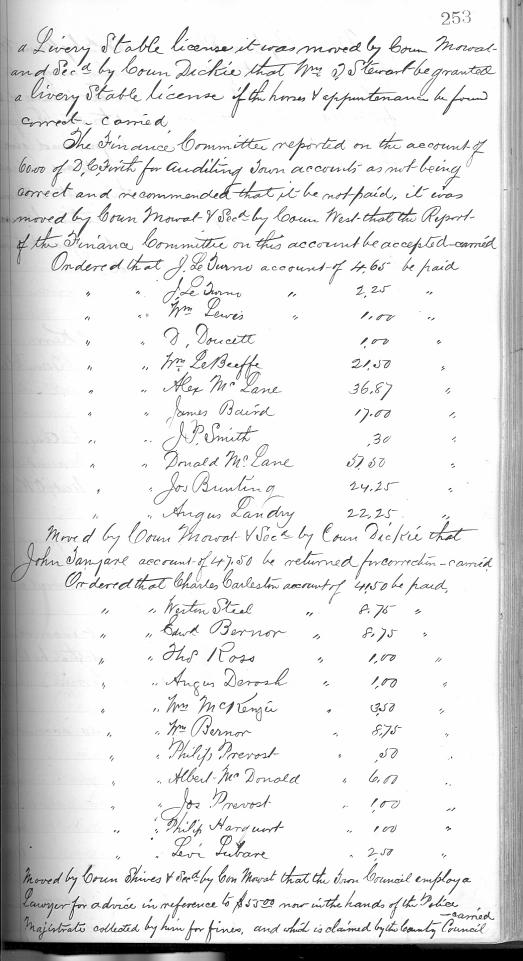 253
a Livery Stable license it was moved by Coun Mowat
and Secd by Coun Dickie that Wm J Stewart be granted
a livery Stable license if the horses & appurtenance be found
correct - carried
The Finance Committee reported on the account of
60.00 of D. C Firth for Auditing Town accounts as not being
correct and recommended that it be not paid, it was
moved by Coun Mowat & Secd by Coun West that the Report
of the Finance Committee on this account be accepted - carried
Ordered that J. Le Furno account of 4.65 be paid
" " J Le Furno " 2.25 "
" " Wm Lewis " 1.00 "
" " D. Doucett 1,00 "
" " Wm LeBeeffe 21,50 "
" " Alex Mc Lane 36.87 "
" " James Baird 17.00 "
" " J. P. Smith ,30 "
" " Donald Mc Lane 51,50 "
" " Jos Bunting 24.25 "
" " Angus Landry 22.25 "
Moved by Coun Mowat & Secd by Coun Dickie that
John account of 47.50 be returned for correctin - carried
Ordered that Charles Carleston account of 41,50 be paid,
" " Weston Steel " 8.75 "
" " Edwd Bernor " 8.75 "
" " Thos Ross " 1,00 "
" " Angus Derosh " 1,00 "
" " Wm McKenzie " 3,50 "
" " Wm Bernor " 8,75 "
" " Philip Prevost " ,50 "
" " Albert Mc Donald " 6,00 "
" " Jos Prevost " 1,00 "
" " Philip Harquort " 1 00 "
" " Levi Lubare " 2,50 "
Moved by Coun Shives & Secd by Con Mowat that the Town Council employ a
Lawyer for advice in reference to $55.00 now in the hands of the Police
Magistrate collected by him for fines, and which is claimed by the County Council - carried